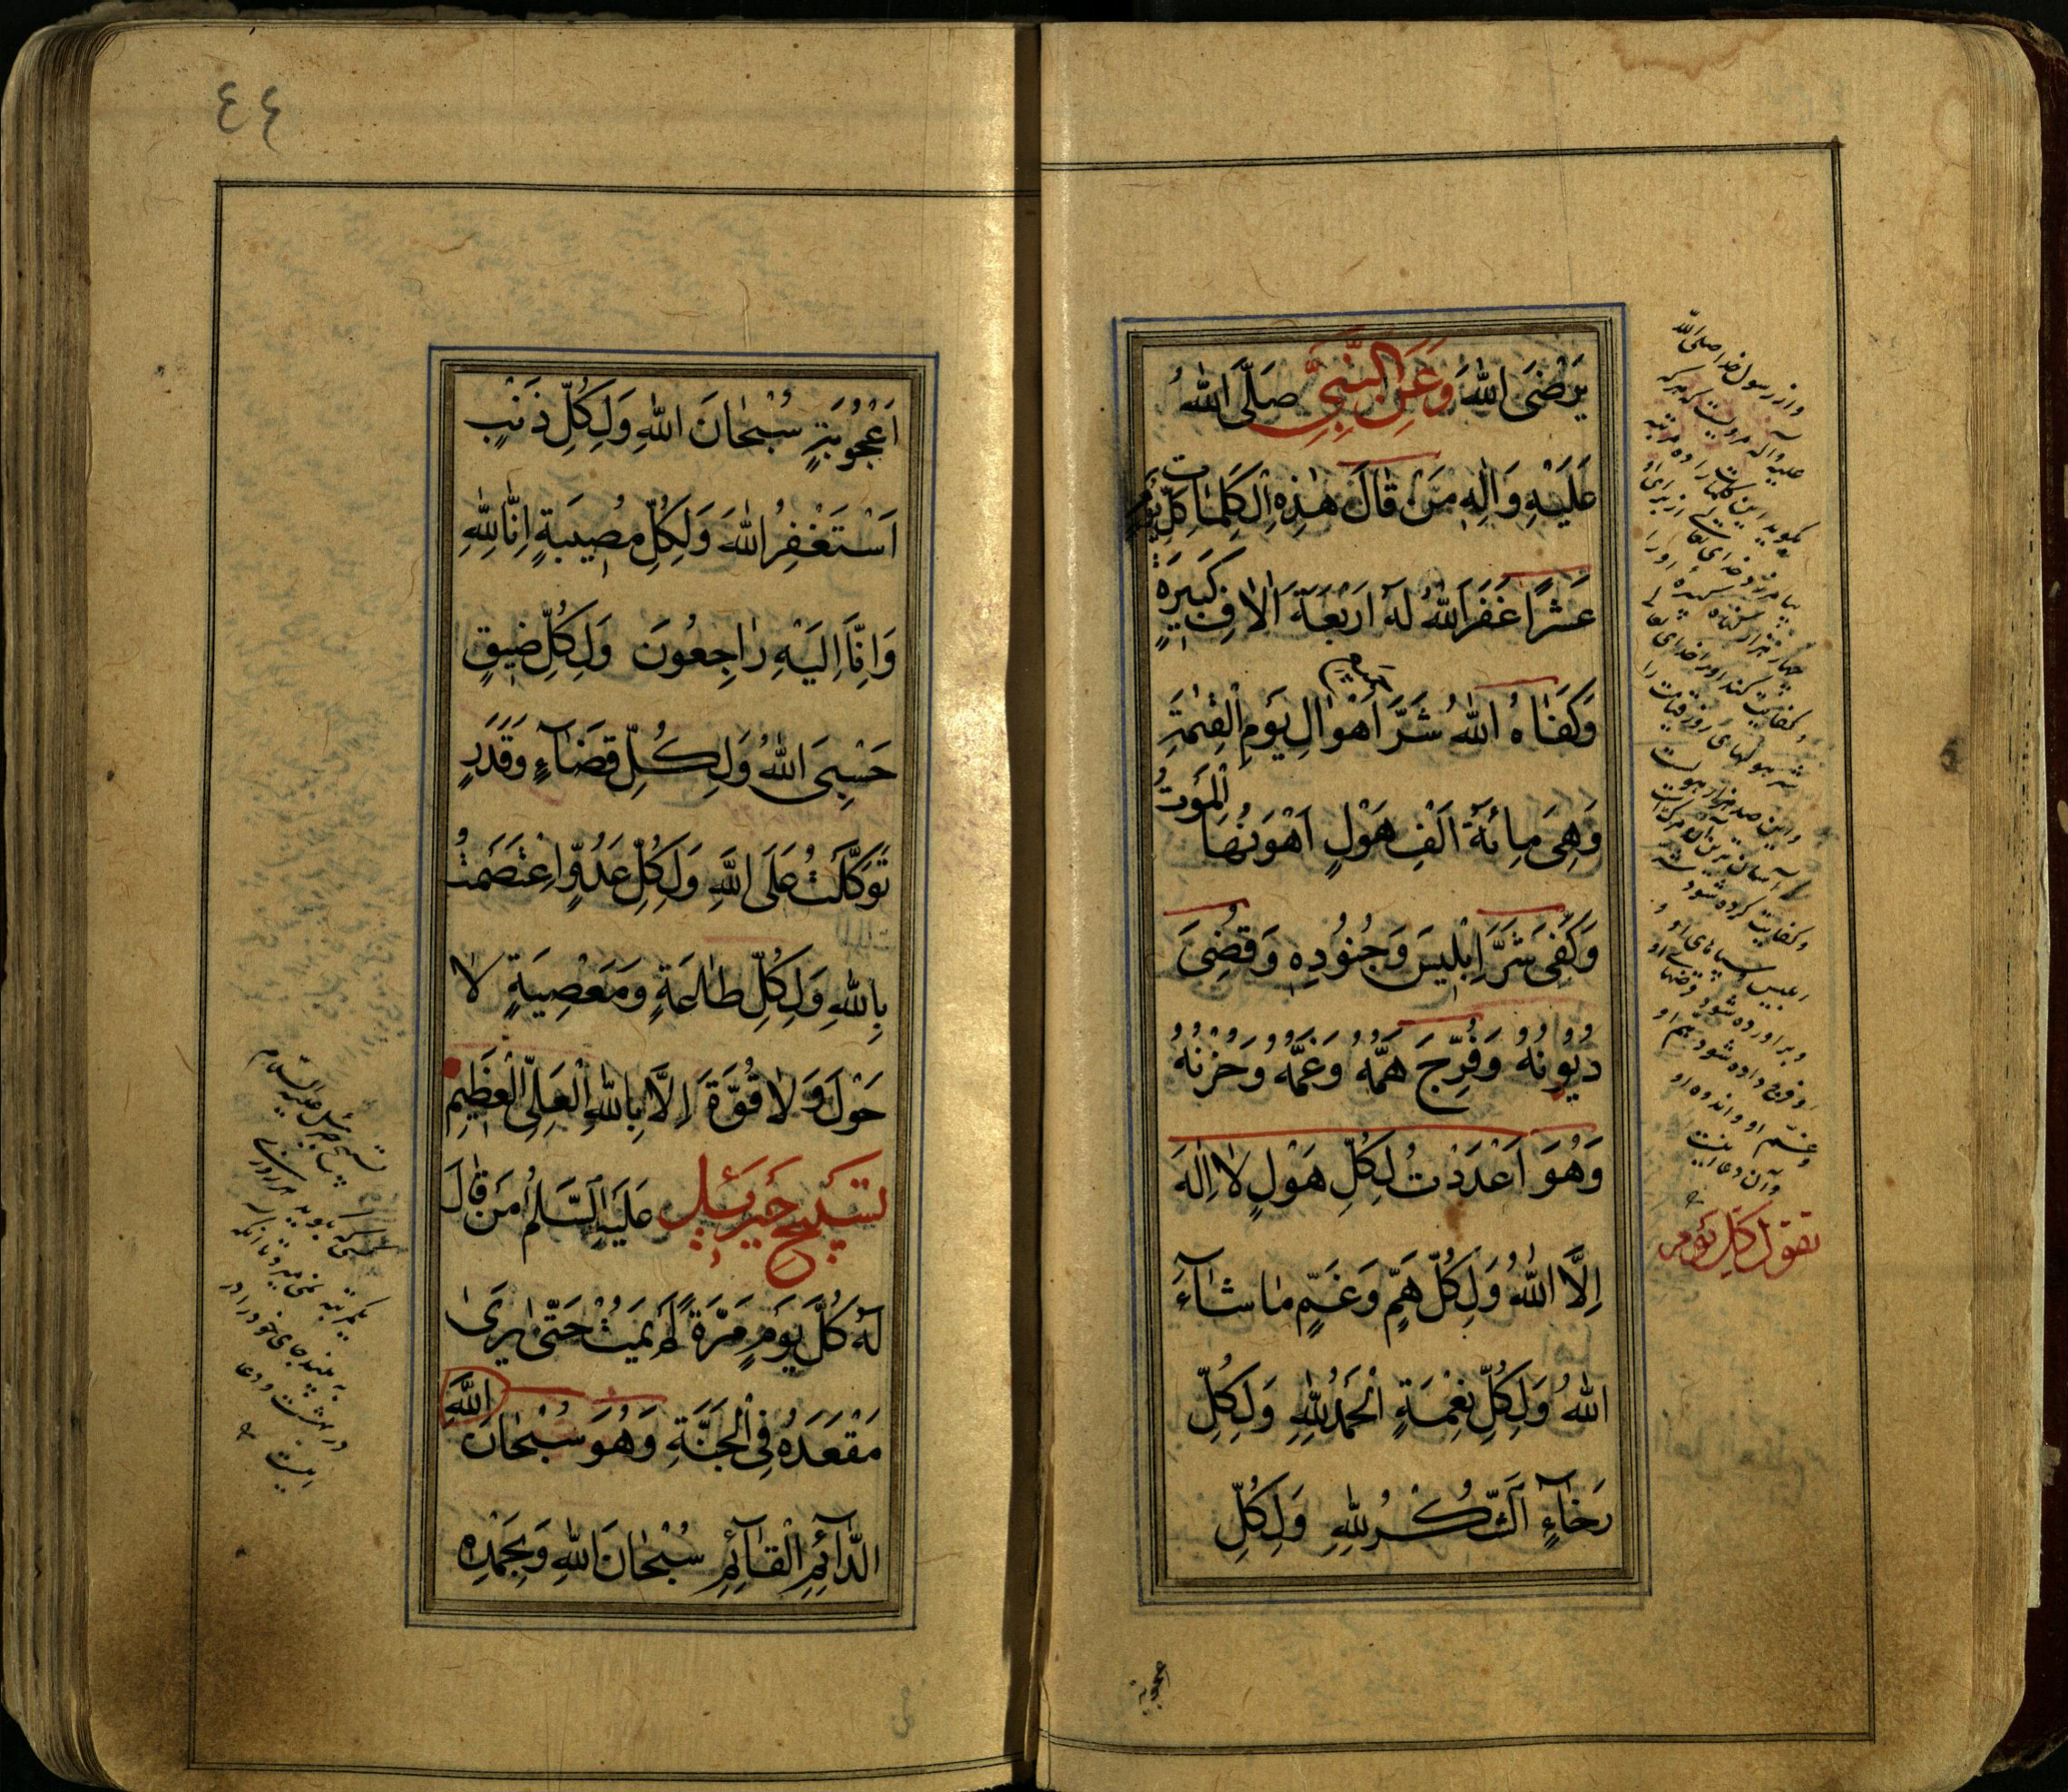 يَرْضَى اللهُ وَعَنِ النَّبِيِّ صَلَّى اللهُ
عَلَيْهِ وَالِهِ مَنْ قَالَ هٰذِهِ الْكَلِمَاتِ كُلَّ يَوْمٍ
عَشْرًا غَفَرَ اللهُ لَهُ اَرْبَعَةَ الْافِ كَبِيرَةٍ
وَكَفَاهُ اللهُ شَرَّ اَهْوَالِ يَوْمِ الْقِيٰمَةِ
وَهِيَ مِائَةُ اَلْفِ هَوْلٍ اَهْوَنُهَا الْمَوْتُ
وَكُفِيَ شَرَّ اِبْلِيسَ وَجُنُودِهِ وَقُضِيَ
دُيُونُهُ وَفُرِّجَ هَمُّهُ وَغَمُّهُ وَحُزْنُهُ
وَهُوَ اَعْدَدْتُ لِكُلِّ هَوْلٍ لَا اِلٰهَ
اِلَّا اللهُ وَلِكُلِّ هَمٍّ وَغَمٍّ مَا شَآءَ
اللهُ وَلِكُلِّ نِعْمَةٍ اَلْحَمْدُ لِلّٰهِ وَلِكُلِّ
رَخَآءٍ اَلشُّكْرُ لِلّٰهِ وَلِكُلِّ
واز رسول خدا صلی الله
علیه وآله مرویست که هر که
بگوید این کلمات را ده مرتبه
بیامرزد خدای تعالی از برای او
چهار هزار گناه کبیره او را
وکفایت کند او را خدای تعالی
شر هولهای روز قیامت را
واین صد هزار هولست
وکفایت کرده شود شر
ابلیس وسپاهای او و
وبر اورده شود قرضهای او
وفرج داده شود هم او
وغم او واندوه او
وآن دعا اینست
تقول كل يوم
٤٤
اُعْجُوبَةٍ سُبْحَانَ اللهِ وَلِكُلِّ ذَنْبٍ
اَسْتَغْفِرُ اللهَ وَلِكُلِّ مُصِيبَةٍ اِنَّا لِلّٰهِ
وَاِنَّا اِلَيْهِ رَاجِعُونَ وَلِكُلِّ ضِيقٍ
حَسْبِيَ اللهُ وَلِكُلِّ قَضَآءٍ وَقَدَرٍ
تَوَكَّلْتُ عَلَى اللهِ وَلِكُلِّ عَدُوٍّ اِعْتَصَمْتُ
بِاللهِ وَلِكُلِّ طَاعَةٍ وَمَعْصِيَةٍ لَا
حَوْلَ وَلَا قُوَّةَ اِلَّا بِاللهِ الْعَلِيِّ الْعَظِيمِ
تسبیح جبرئیل عَلَيْهِ السَّلَامُ مَنْ قَالَ
لَهُ كُلَّ يَوْمٍ مَرَّةً لَمْ يَمُتْ حَتّٰى يَرٰى
مَقْعَدَهُ فِي الْجَنَّةِ وَهُوَ سُبْحَانَ اللهِ
الدَّآئِمِ الْقَآئِمِ سُبْحَانَ اللهِ وَبِحَمْدِهِ
تسبیح جبرئیل علیه السلام
یکمرتبه نمی میرد تا آنکه
به بیند جای خود را در
در بهشت ودعا
اینست